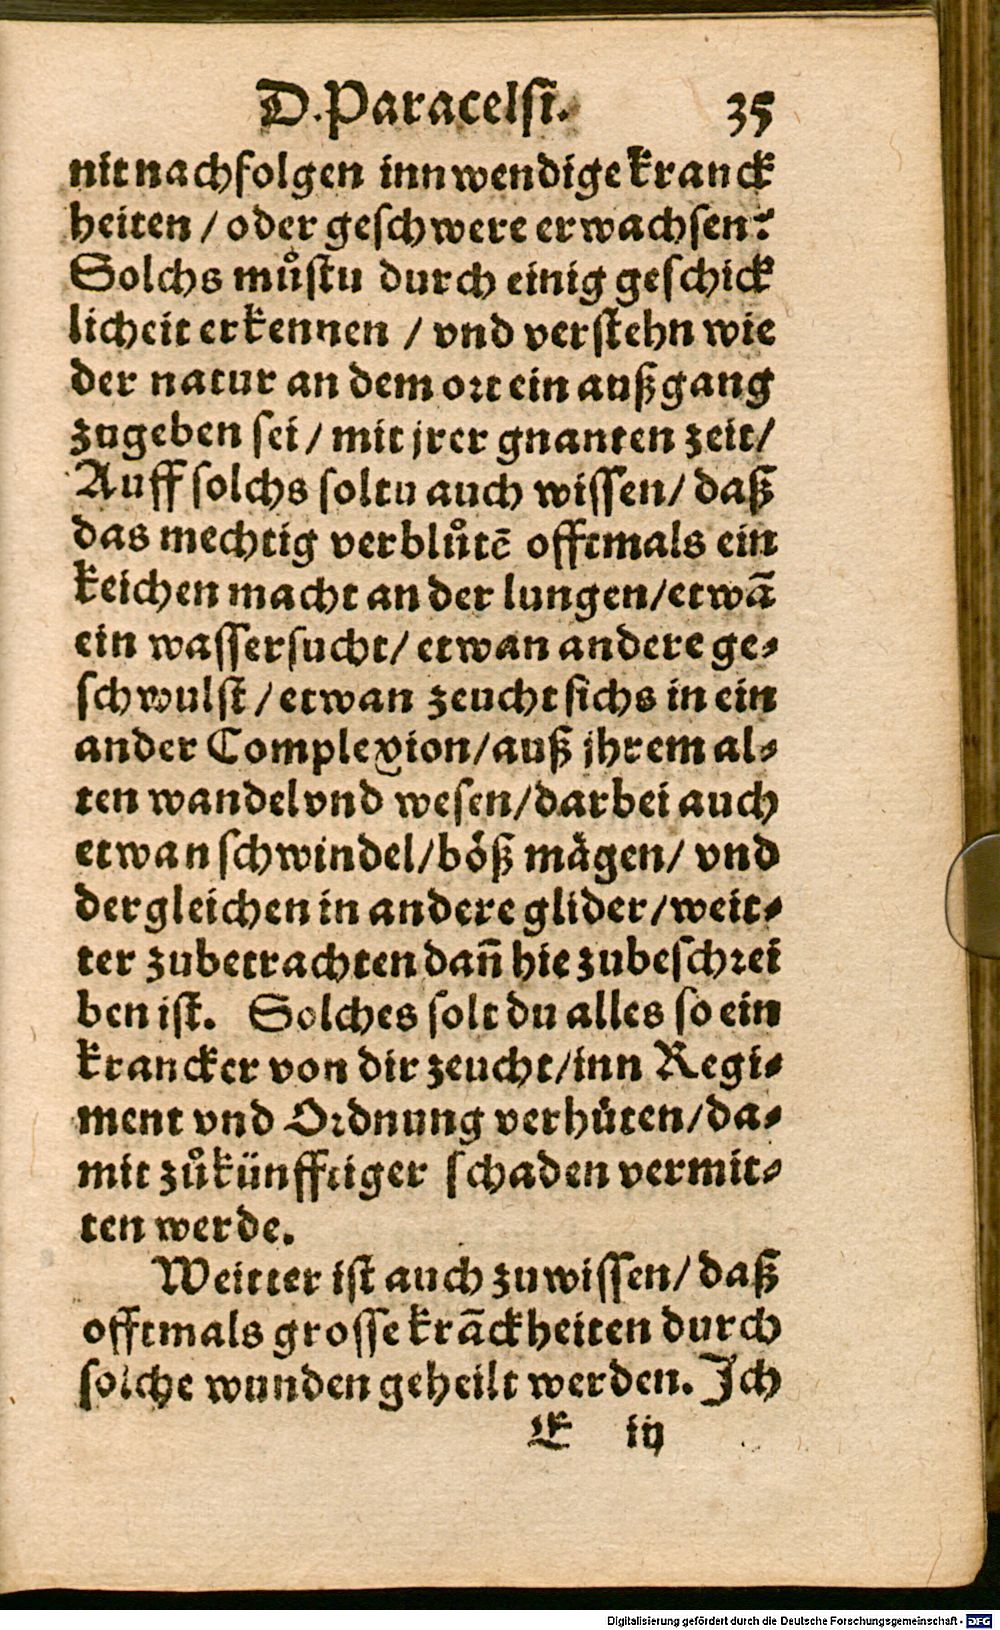 D. Paracelsi. 35
nit nachfolgen innwendige kranck
heiten / oder geschwere erwachsen?
Solchs můstu durch einig geschick
licheit erkennen / vnd verstehn wie
der natur an dem ort ein außgang
zugeben sei / mit jrer gnanten zeit /
Auff solchs soltu auch wissen / daß
das mechtig verblůtē offtmals ein
keichen macht an der lungen / etwā
ein wassersucht / etwan andere ge-
schwulst / etwan zeucht sichs in ein
ander Complexion / auß jhrem al-
ten wandel vnd wesen / darbei auch
etwan schwindel / böß mägen / vnd
dergleichen in andere glider / weit-
ter zubetrachten dañ hie zubeschrei
ben ist. Solches solt du alles so ein
krancker von dir zeucht / inn Regi-
ment vnd Ordnung verhüten / da-
mit zůkünfftiger schaden vermit-
ten werde.
Weitter ist auch zuwissen / daß
offtmals grosse krāckheiten durch
solche wunden geheilt werden. Ich
E iij
Digitalisierung gefördert durch die Deutsche Forschungsgemeinschaft - DFG